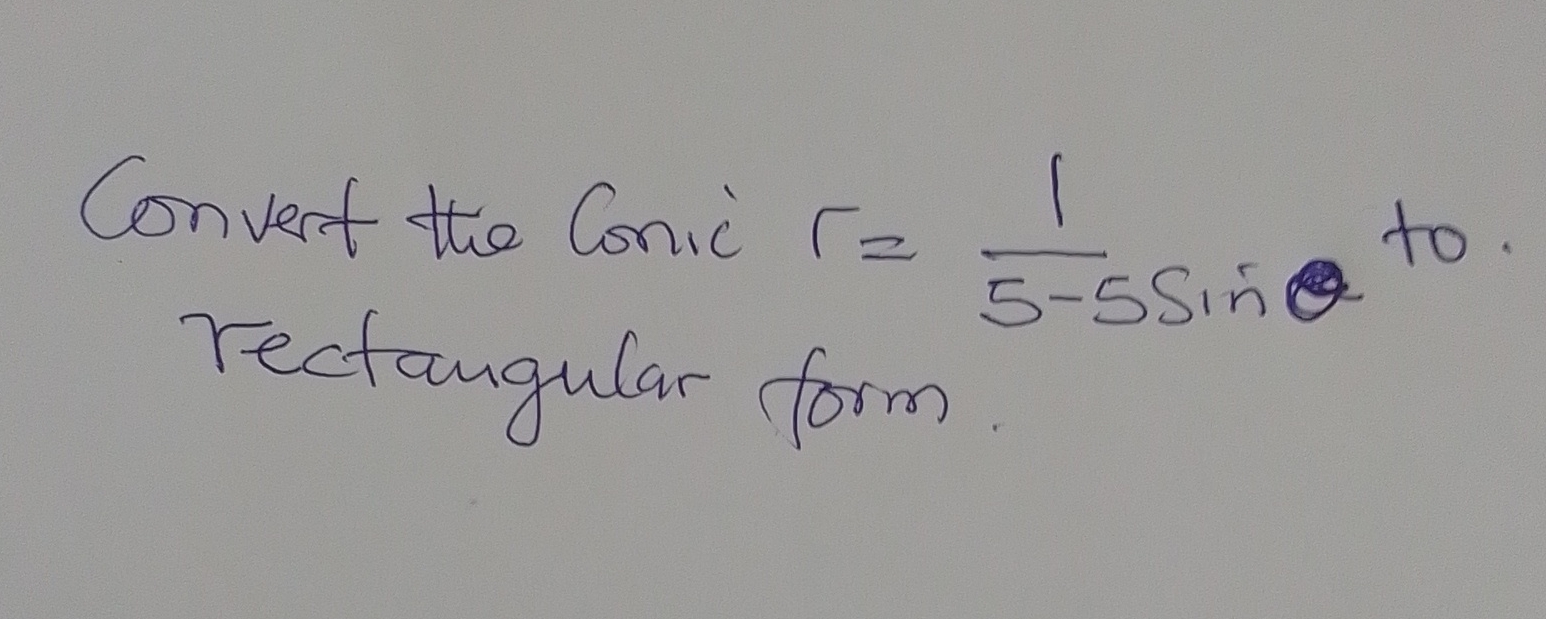 Convert the Conic r = 1/(5-5Sinθ) to.
rectangular form.